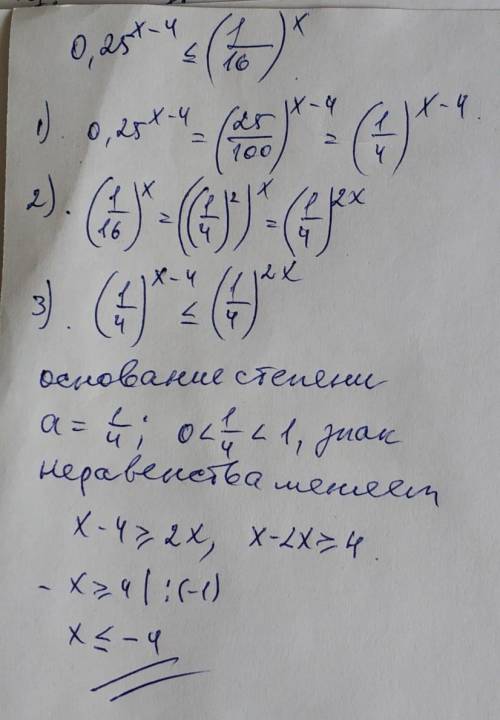 0,25^(x-4) ≤ (1/16)^x
1). 0,25^(x-4) = (25/100)^(x-4) = (1/4)^(x-4).
2). (1/16)^x = ((1/4)^2)^x = (1/4)^(2x)
3). (1/4)^(x-4) ≤ (1/4)^(2x)
основание степени
a = 1/4; 0<1/4<1, знак
неравенства меняем
x-4 ≥ 2x, x-2x ≥ 4.
-x ≥ 4 | :(-1)
x ≤ -4